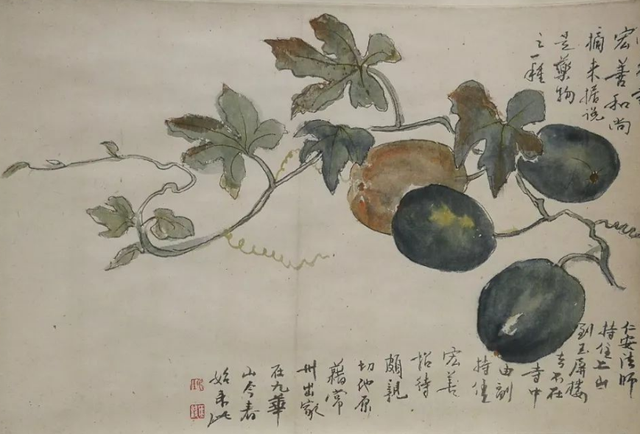 宏善和尚
摘来据说
是药物
之一种
仁安法师
持住上山
到玉屏楼
去不在
寺中
由副
持住
宏善
招待
颇亲
切他原
籍常
州出家
在九华
山今春
始来此